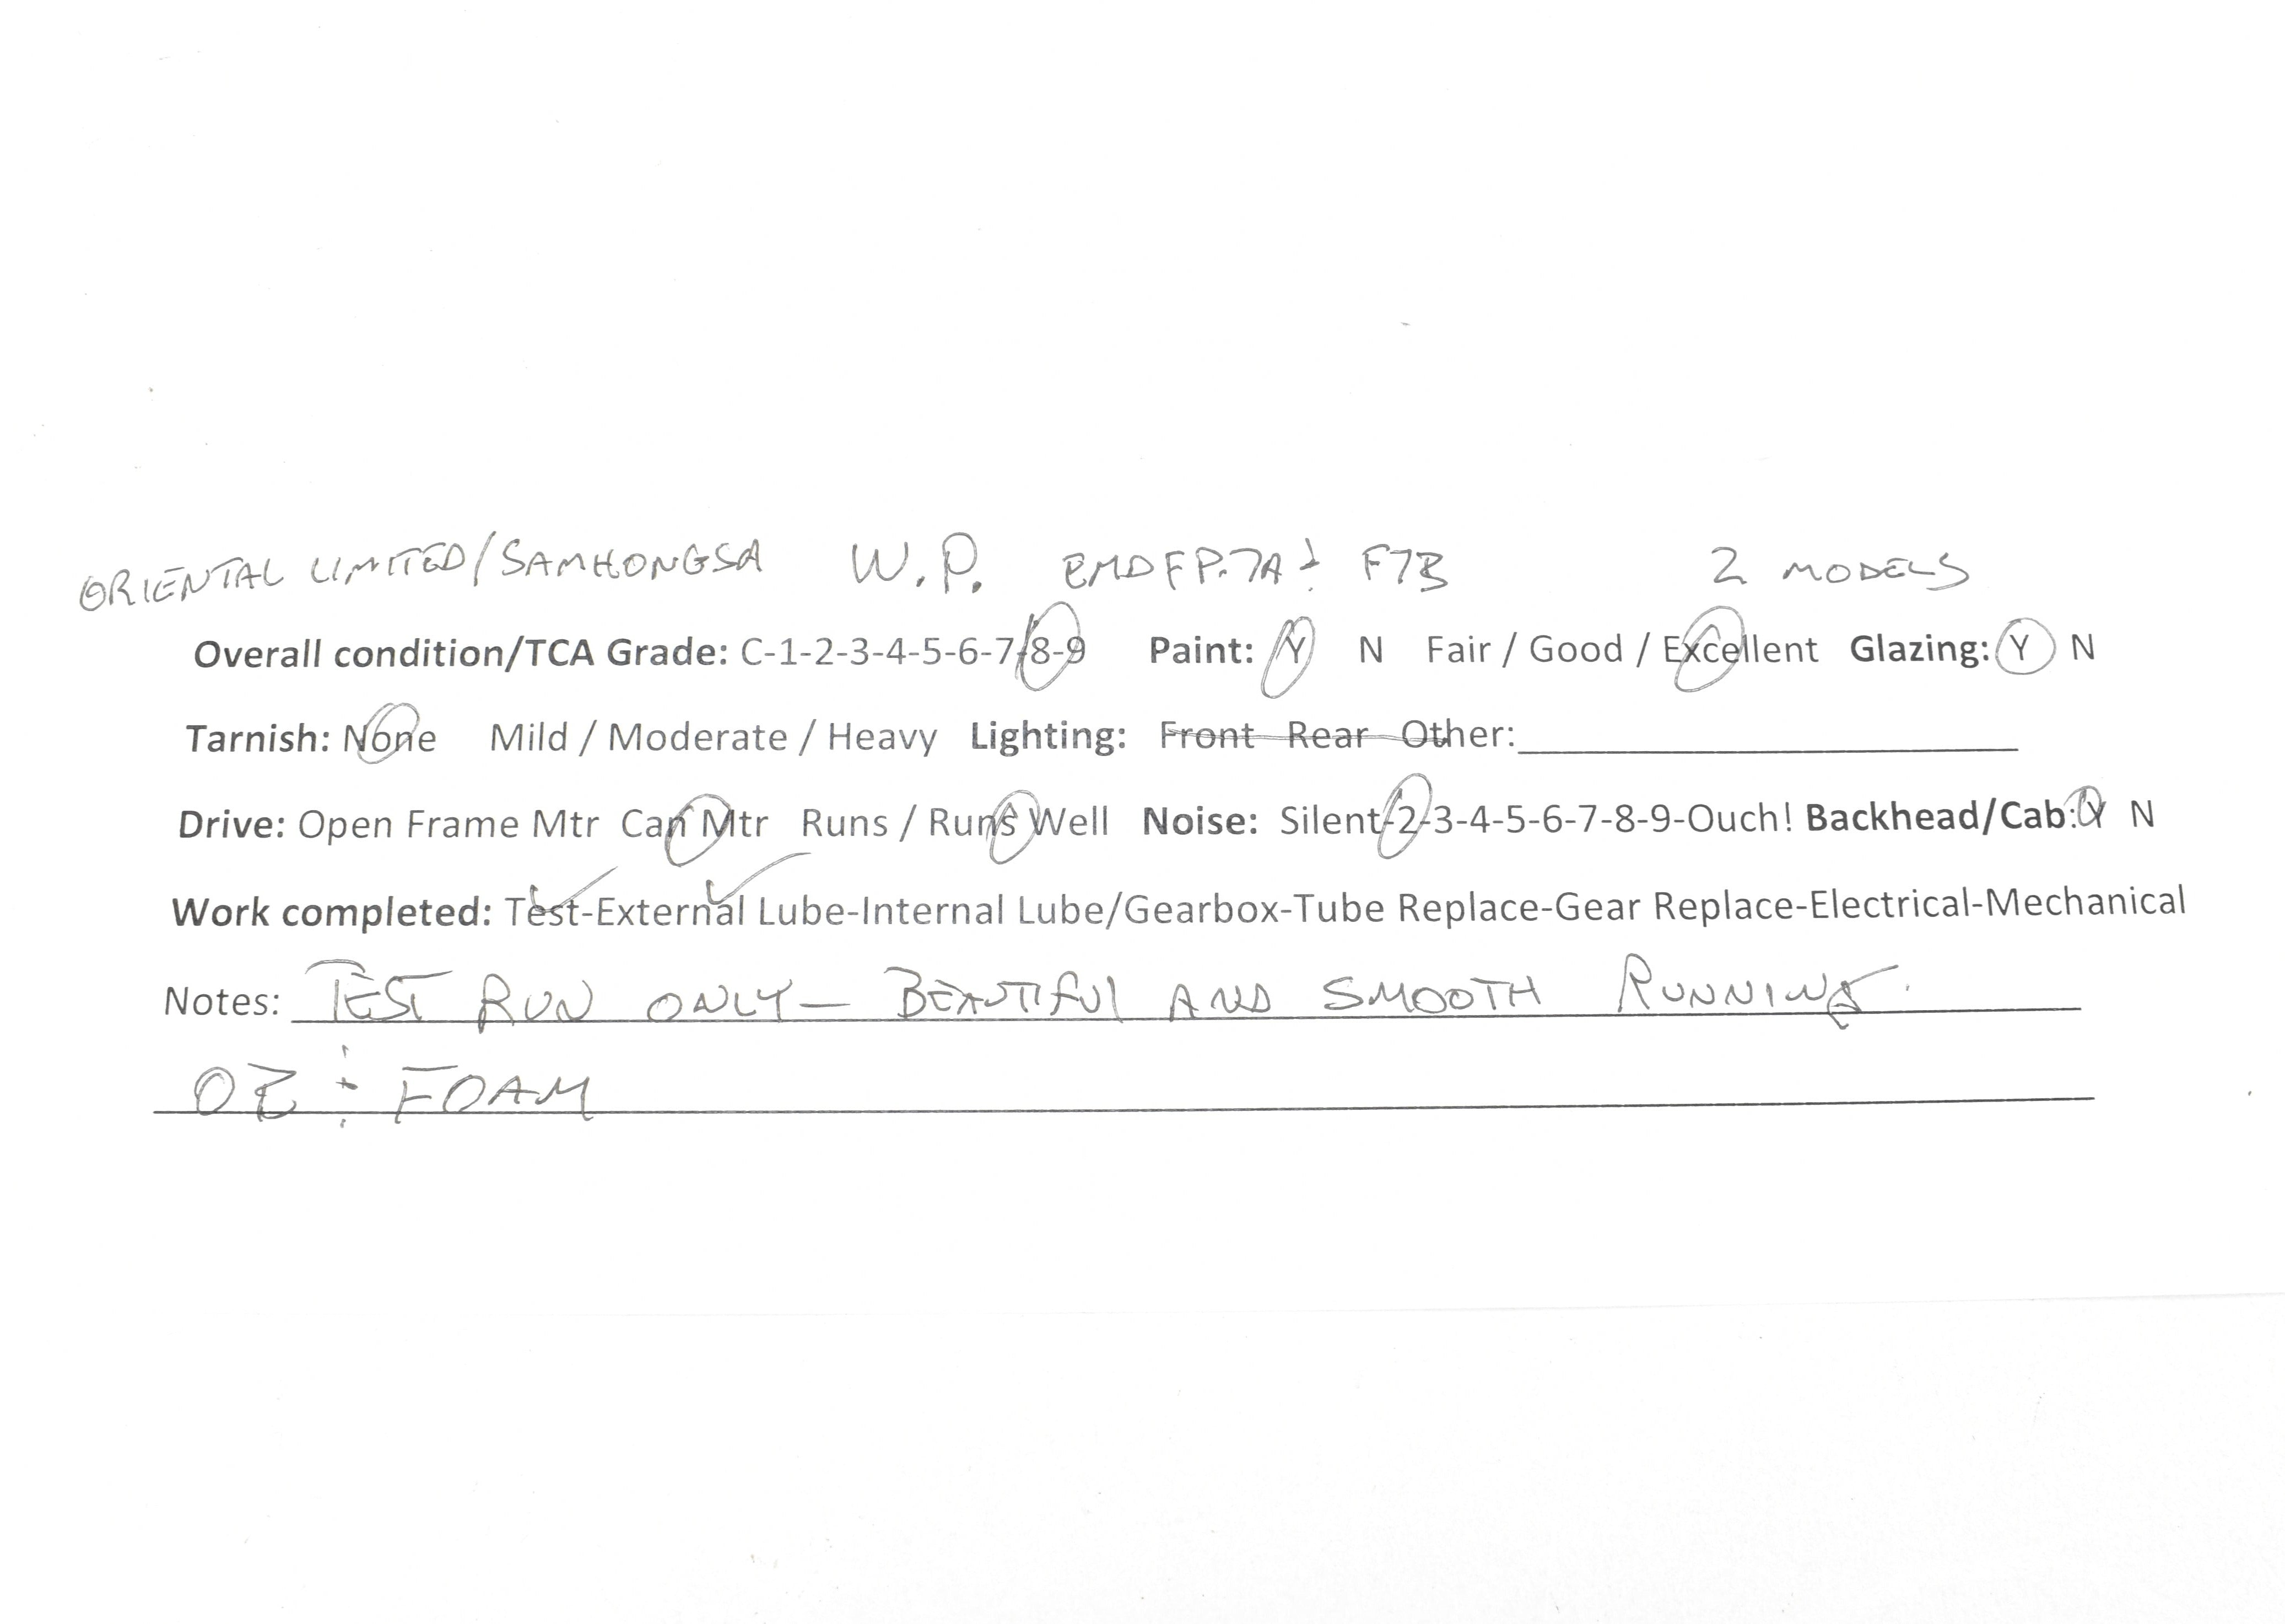 ORIENTAL LIMITED/SAMHONGSA W.P. EMD FP-7A & F7B 2 MODELS
Overall condition/TCA Grade: C-1-2-3-4-5-6-7-8-9 Paint: Y N Fair / Good / Excellent Glazing: Y N
Tarnish: None Mild / Moderate / Heavy Lighting: Front Rear Other:
Drive: Open Frame Mtr Can Mtr Runs / Runs Well Noise: Silent-2-3-4-5-6-7-8-9-Ouch! Backhead/Cab: Y N
Work completed: Test-External Lube-Internal Lube/Gearbox-Tube Replace-Gear Replace-Electrical-Mechanical
Notes: TEST RUN ONLY — BEAUTIFUL AND SMOOTH RUNNING.
OB & FOAM